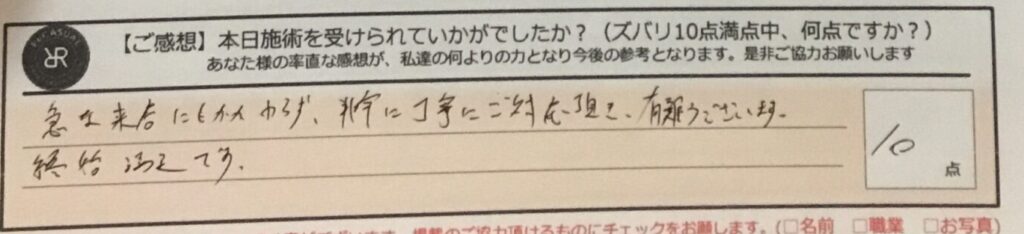 【ご感想】本日施術を受けられていかがでしたか？（ズバリ10点満点中、何点ですか？）
あなた様の率直な感想が、私達の何よりの力となり今後の参考となります。是非ご協力お願いします
急な来店にもかかわらず、非常に丁寧にご対応頂き、有難うございます。
終始満足です。
10
点
掲載のご協力頂けるものにチェックをお願します。(□名前 □職業 □お写真)